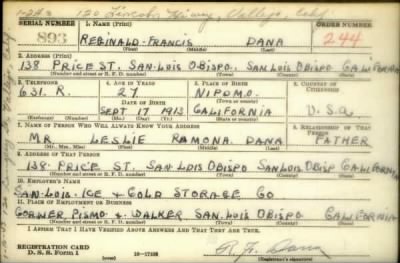 1-24-3 120 Lincoln Hiway, Vallejo, Calif
SERIAL NUMBER 1. NAME (Print) ORDER NUMBER
893 REGINALD-FRANCIS DANA 244
(First) (Middle) (Last)
2. ADDRESS (Print)
138 PRICE ST. SAN-LOIS OBISPO. SAN LOIS OBISPO CALIFORNIA
(Number and street or R. F. D. number) (Town) (County) (State)
3. TELEPHONE 4. AGE IN YEARS 5. PLACE OF BIRTH 6. COUNTRY OF CITIZENSHIP
631. R. 27. NIPOMO.
DATE OF BIRTH
SEPT 17 1913 CALIFORNIA U.S.A.
(Exchange) (Number) (Mo.) (Day) (Yr.) (State or country)
7. NAME OF PERSON WHO WILL ALWAYS KNOW YOUR ADDRESS 8. RELATIONSHIP OF THAT PERSON
MR LESLIE RAMONA DANA FATHER
(Mr., Mrs., Miss) (First) (Middle) (Last)
9. ADDRESS OF THAT PERSON
138. PRICE ST. SAN LOIS OBISPO SAN LOIS. OBISP CALIFORNIA
(Number and street or R. F. D. number) (Town) (County) (State)
10. EMPLOYER'S NAME
SAN-LOIS-ICE & COLD STORAGE CO
11. PLACE OF EMPLOYMENT OR BUSINESS
CORNER PISMO & WALKER SAN. LOIS OBISPO CALIFORNIA
(Number and street or R. F. D. number) (Town) (County) (State)
I AFFIRM THAT I HAVE VERIFIED ABOVE ANSWERS AND THAT THEY ARE TRUE.
REGISTRATION CARD
D. S. S. Form 1 (over) 16-17105 R. F. Dana
(Registrant's signature)